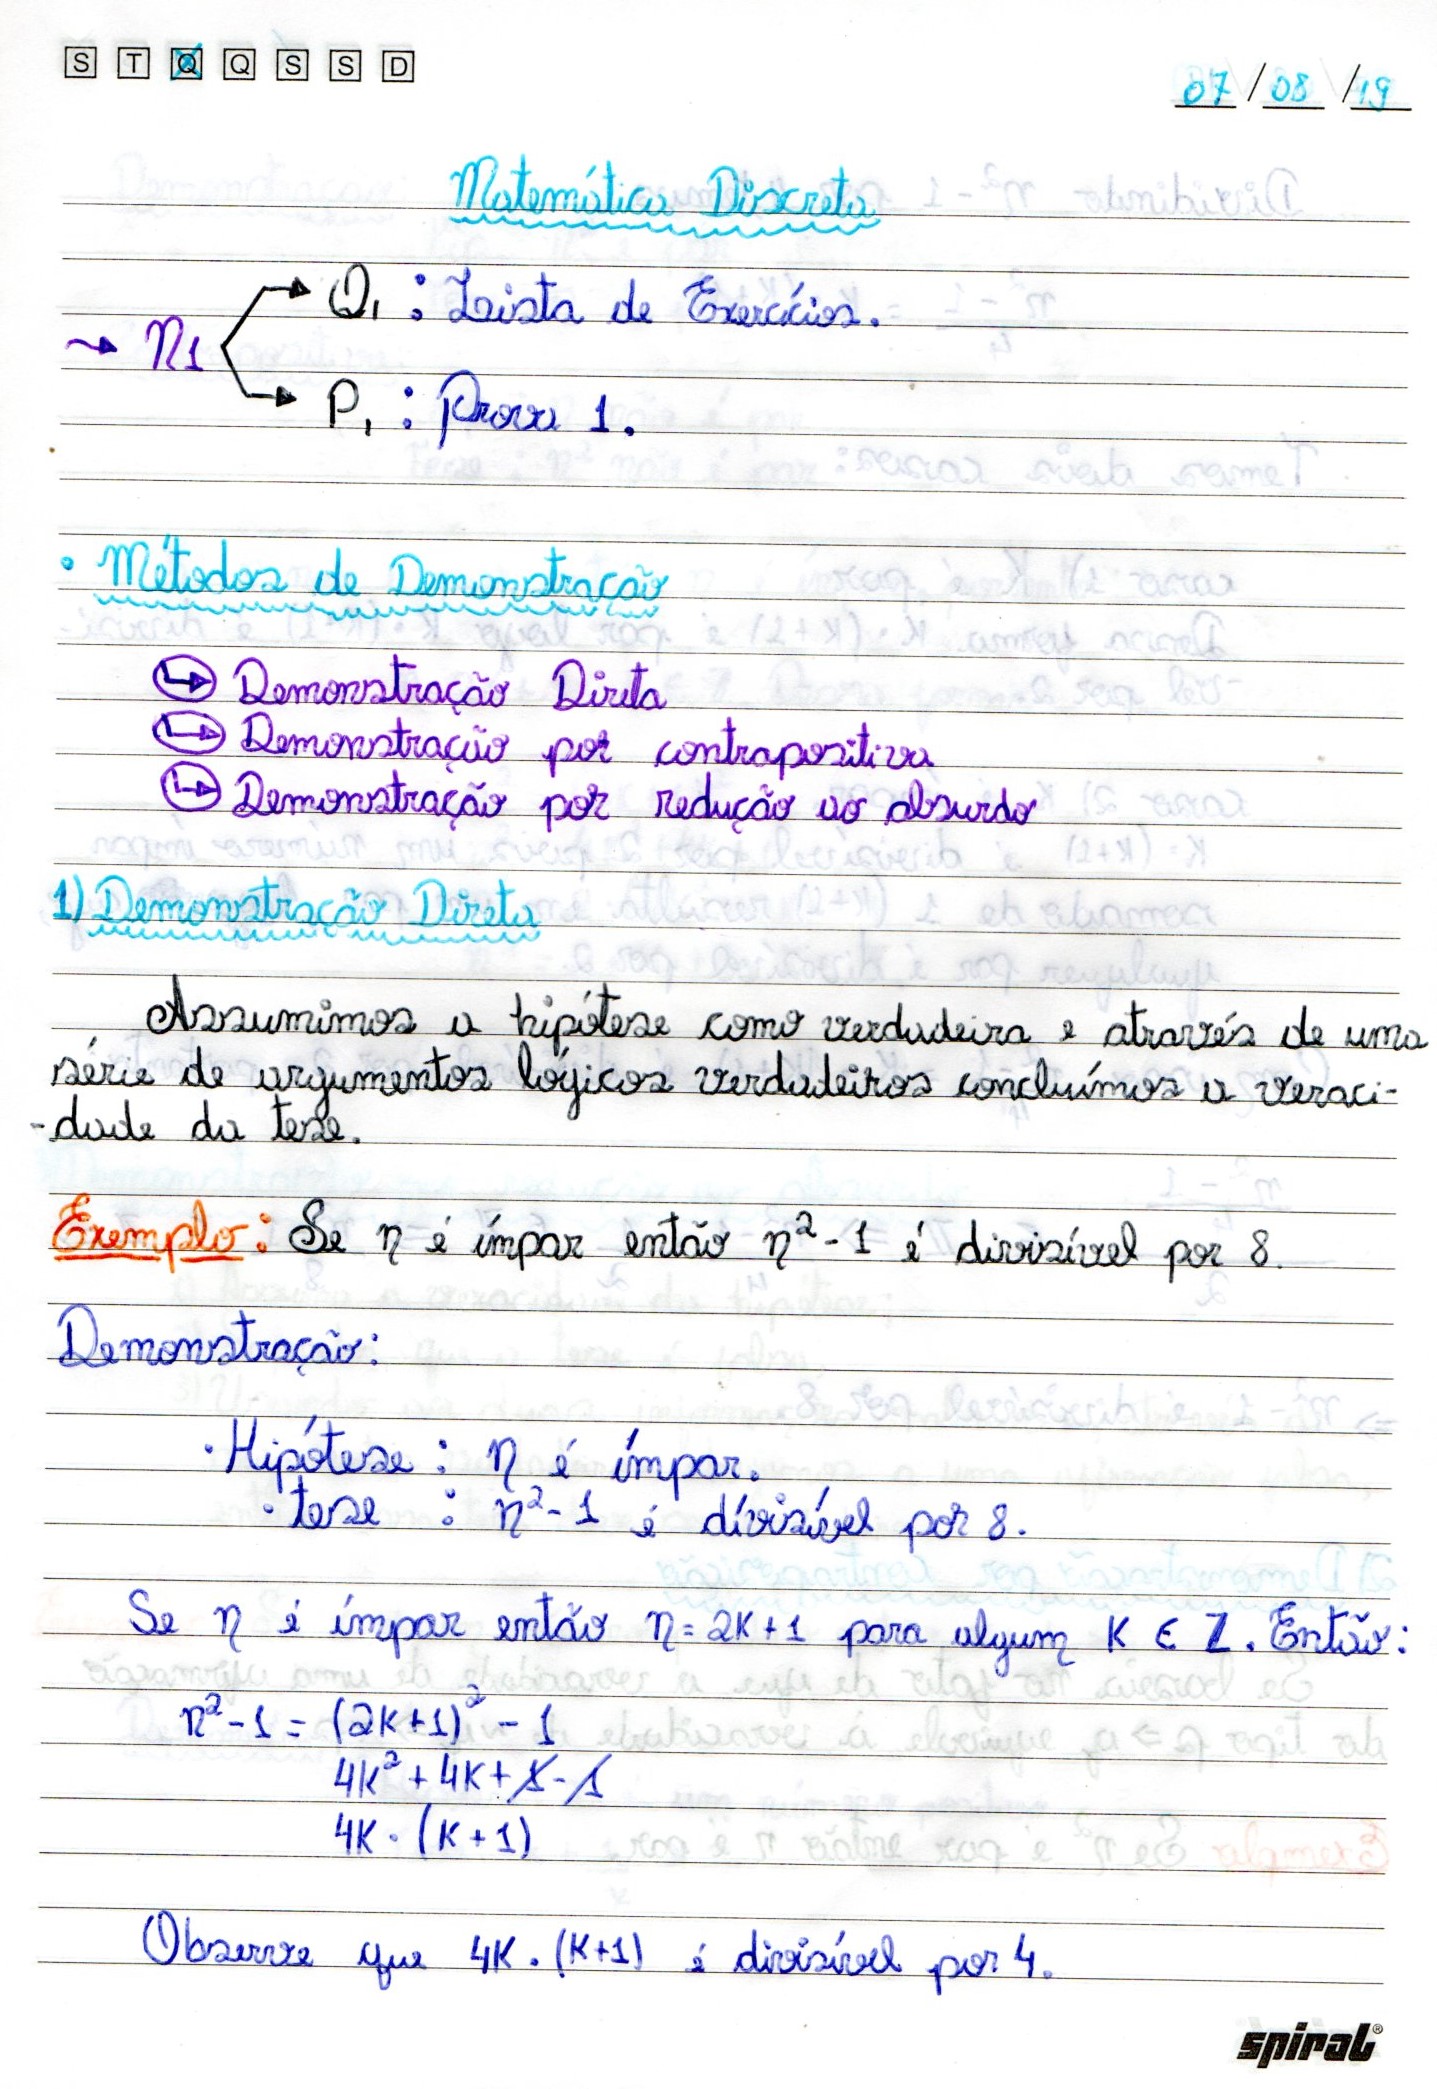 S T Q Q S S D
07/08/19
Matemática Discreta
→ N1
Q1 : Lista de Exercícios.
P1 : Prova 1.
• Métodos de Demonstração
↳ Demonstração Direta
↳ Demonstração por contrapositiva
↳ Demonstração por redução ao absurdo
1) Demonstração Direta
Assumimos a hipótese como verdadeira e através de uma
série de argumentos lógicos verdadeiros concluímos a veraci-
-dade da tese.
Exemplo: Se n é ímpar então n²-1 é divisível por 8.
Demonstração:
• Hipótese : n é ímpar.
• tese : n²-1 é dívisível por 8.
Se n é ímpar então n = 2K+1 para algum K ∈ Z. Então:
n²-1 = (2K+1)² - 1
4K² + 4K + 1 - 1
4K · (K+1)
Observe que 4K . (K+1) é divisível por 4.
spiral®